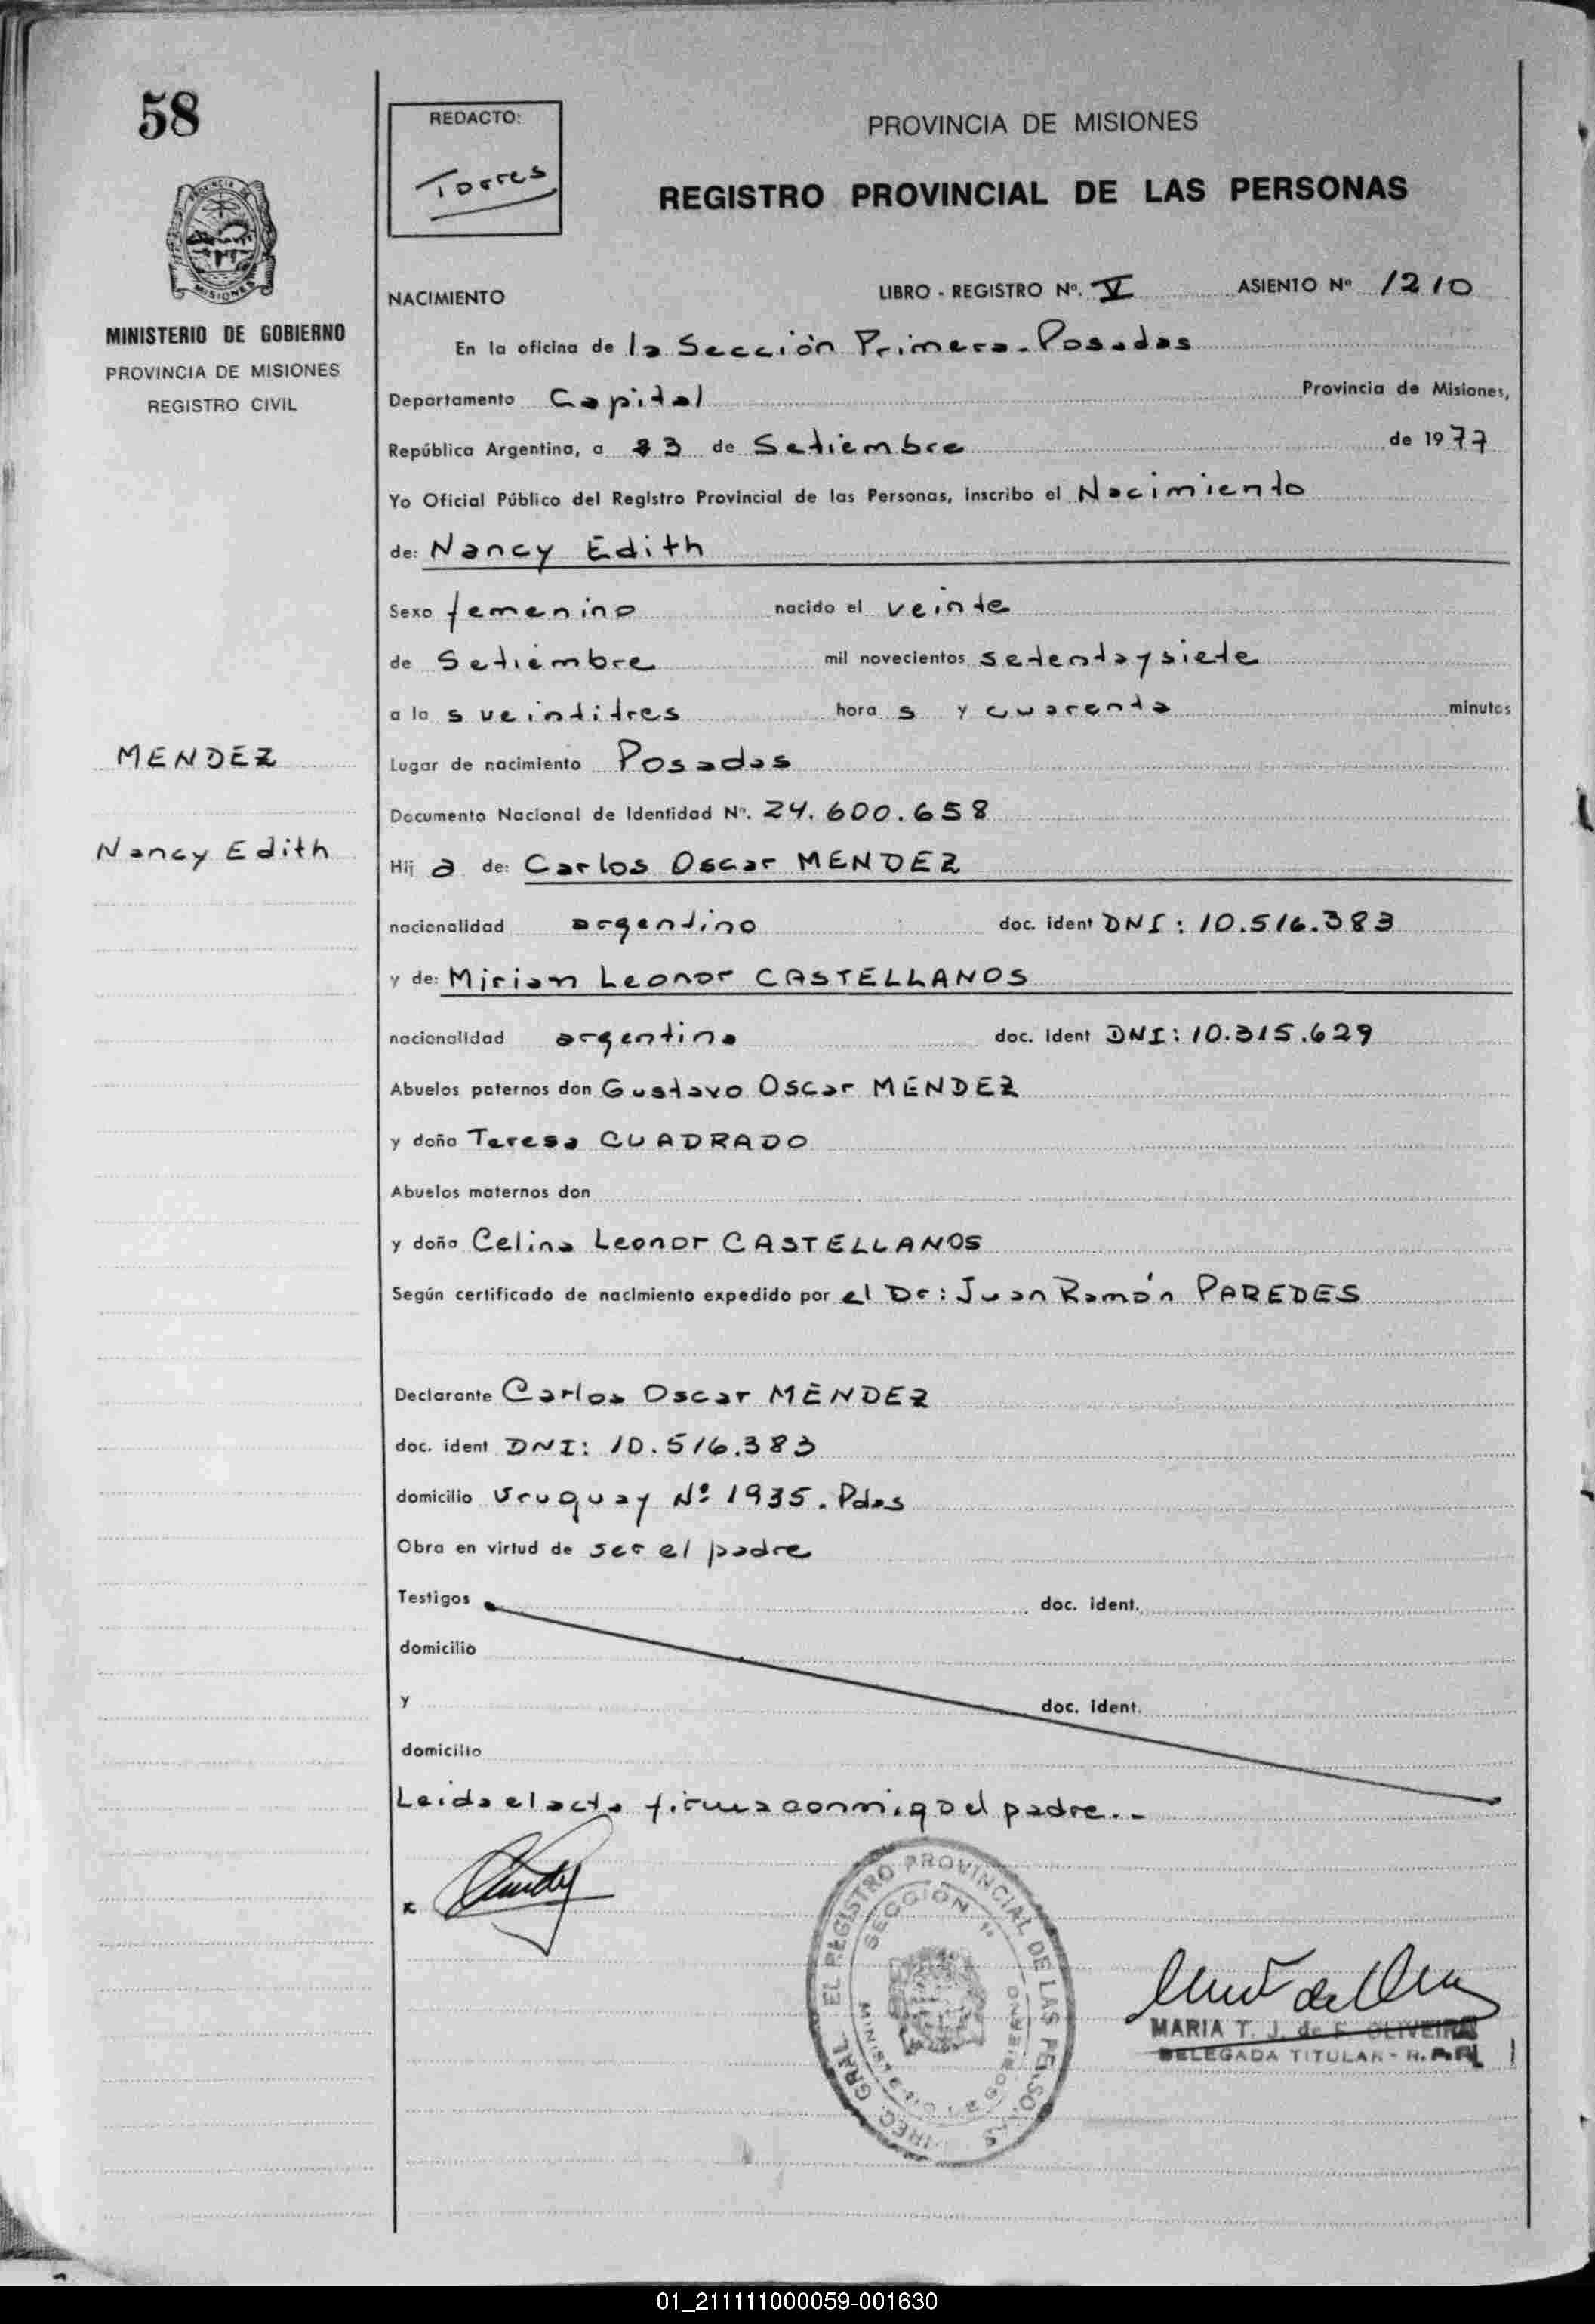 58
REDACTO:
Torres
PROVINCIA DE MISIONES
REGISTRO PROVINCIAL DE LAS PERSONAS
MISIONES
MINISTERIO DE GOBIERNO
PROVINCIA DE MISIONES
REGISTRO CIVIL
NACIMIENTO LIBRO - REGISTRO Nº. V ASIENTO Nº 1210
En la oficina de la Sección Primera - Posadas
Departamento Capital Provincia de Misiones,
República Argentina, a 23 de Setiembre de 1977
Yo Oficial Público del Registro Provincial de las Personas, inscribo el Nacimiento
de: Nancy Edith
Sexo femenino nacido el veinte
de Setiembre mil novecientos setenta y siete
a las veintitres horas y cuarenta minutos
MENDEZ
Lugar de nacimiento Posadas
Documento Nacional de Identidad Nº. 24.600.658
Nancy Edith
Hija de: Carlos Oscar MENDEZ
nacionalidad argentino doc. ident DNI: 10.516.383
y de: Mirian Leonor CASTELLANOS
nacionalidad argentina doc. ident DNI: 10.315.629
Abuelos paternos don Gustavo Oscar MÉNDEZ
y doña Teresa CUADRADO
Abuelos maternos don
y doña Celina Leonor CASTELLANOS
Según certificado de nacimiento expedido por el Dr: Juan Ramón PAREDES
Declarante Carlos Oscar MÉNDEZ
doc. ident DNI: 10.516.383
domicilio Uruguay Nº 1935. Pdas
Obra en virtud de ser el padre
Testigos doc. ident.
domicilio
y doc. ident.
domicilio
Leida el acta firma conmigo el padre.-
x
GRAL EL REGISTRO PROVINCIAL DE LAS PERSONAS
SECCION 1ª
MINISTERIO DE GOBIERNO
MARIA T. J. de F. OLIVEIRA
DELEGADA TITULAR - R.
01_211111000059-001630